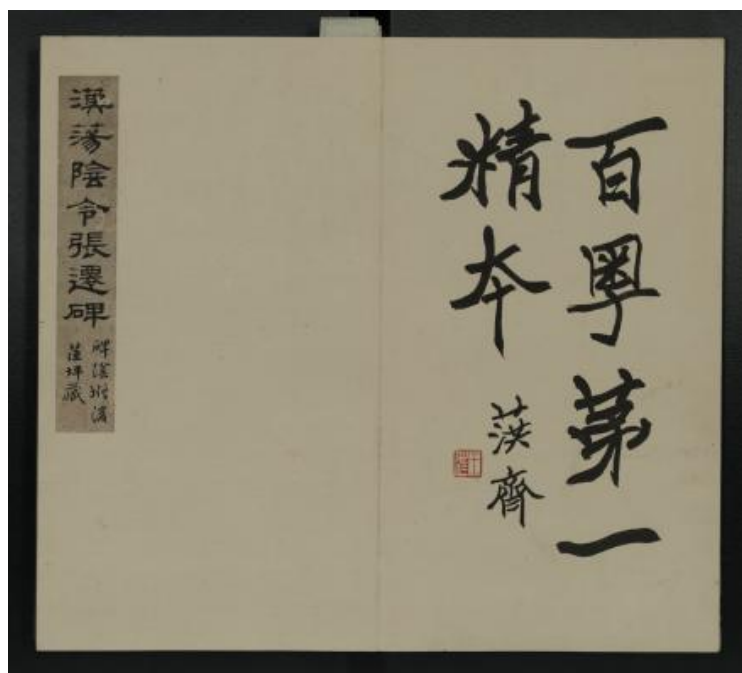 百粤第一
精本
葓齊
漢蕩陰令張遷碑
碑陰附後
坪藏